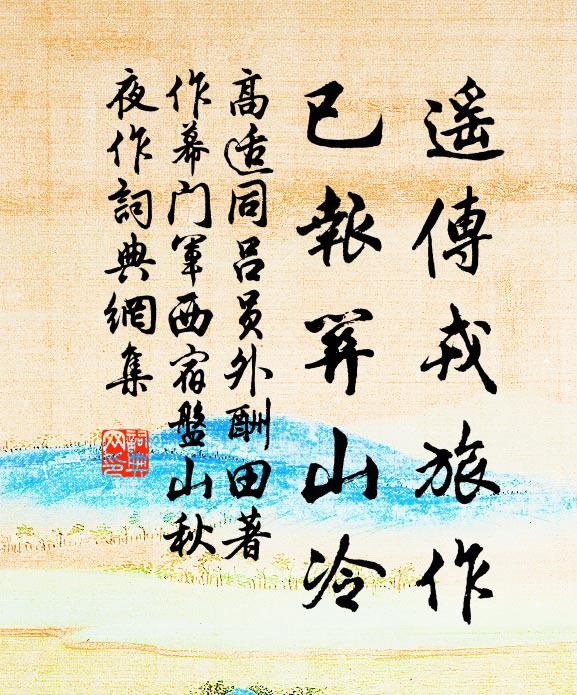 遥傳戎旅作
已報關山冷
高适同吕员外酬田著
作幕门軍西宿盤山秋
夜作詞典網集